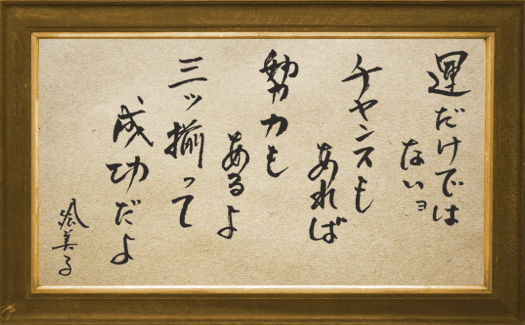 運だけでは
ないョ
チャンスも
あれば
努力も
あるよ
三ッ揃って
成功だよ